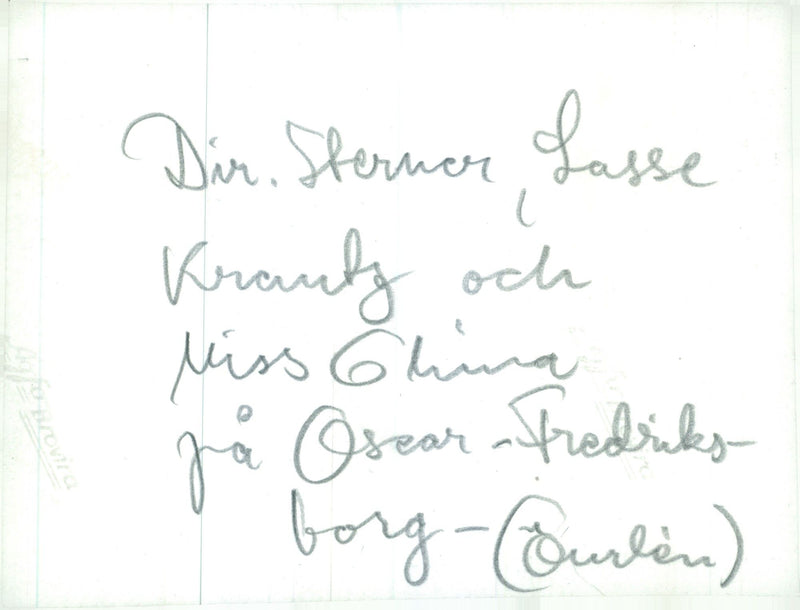 Dir. Sterner, Lasse
Krantz och
Miss China
på Oscar-Fredriks-
borg - (